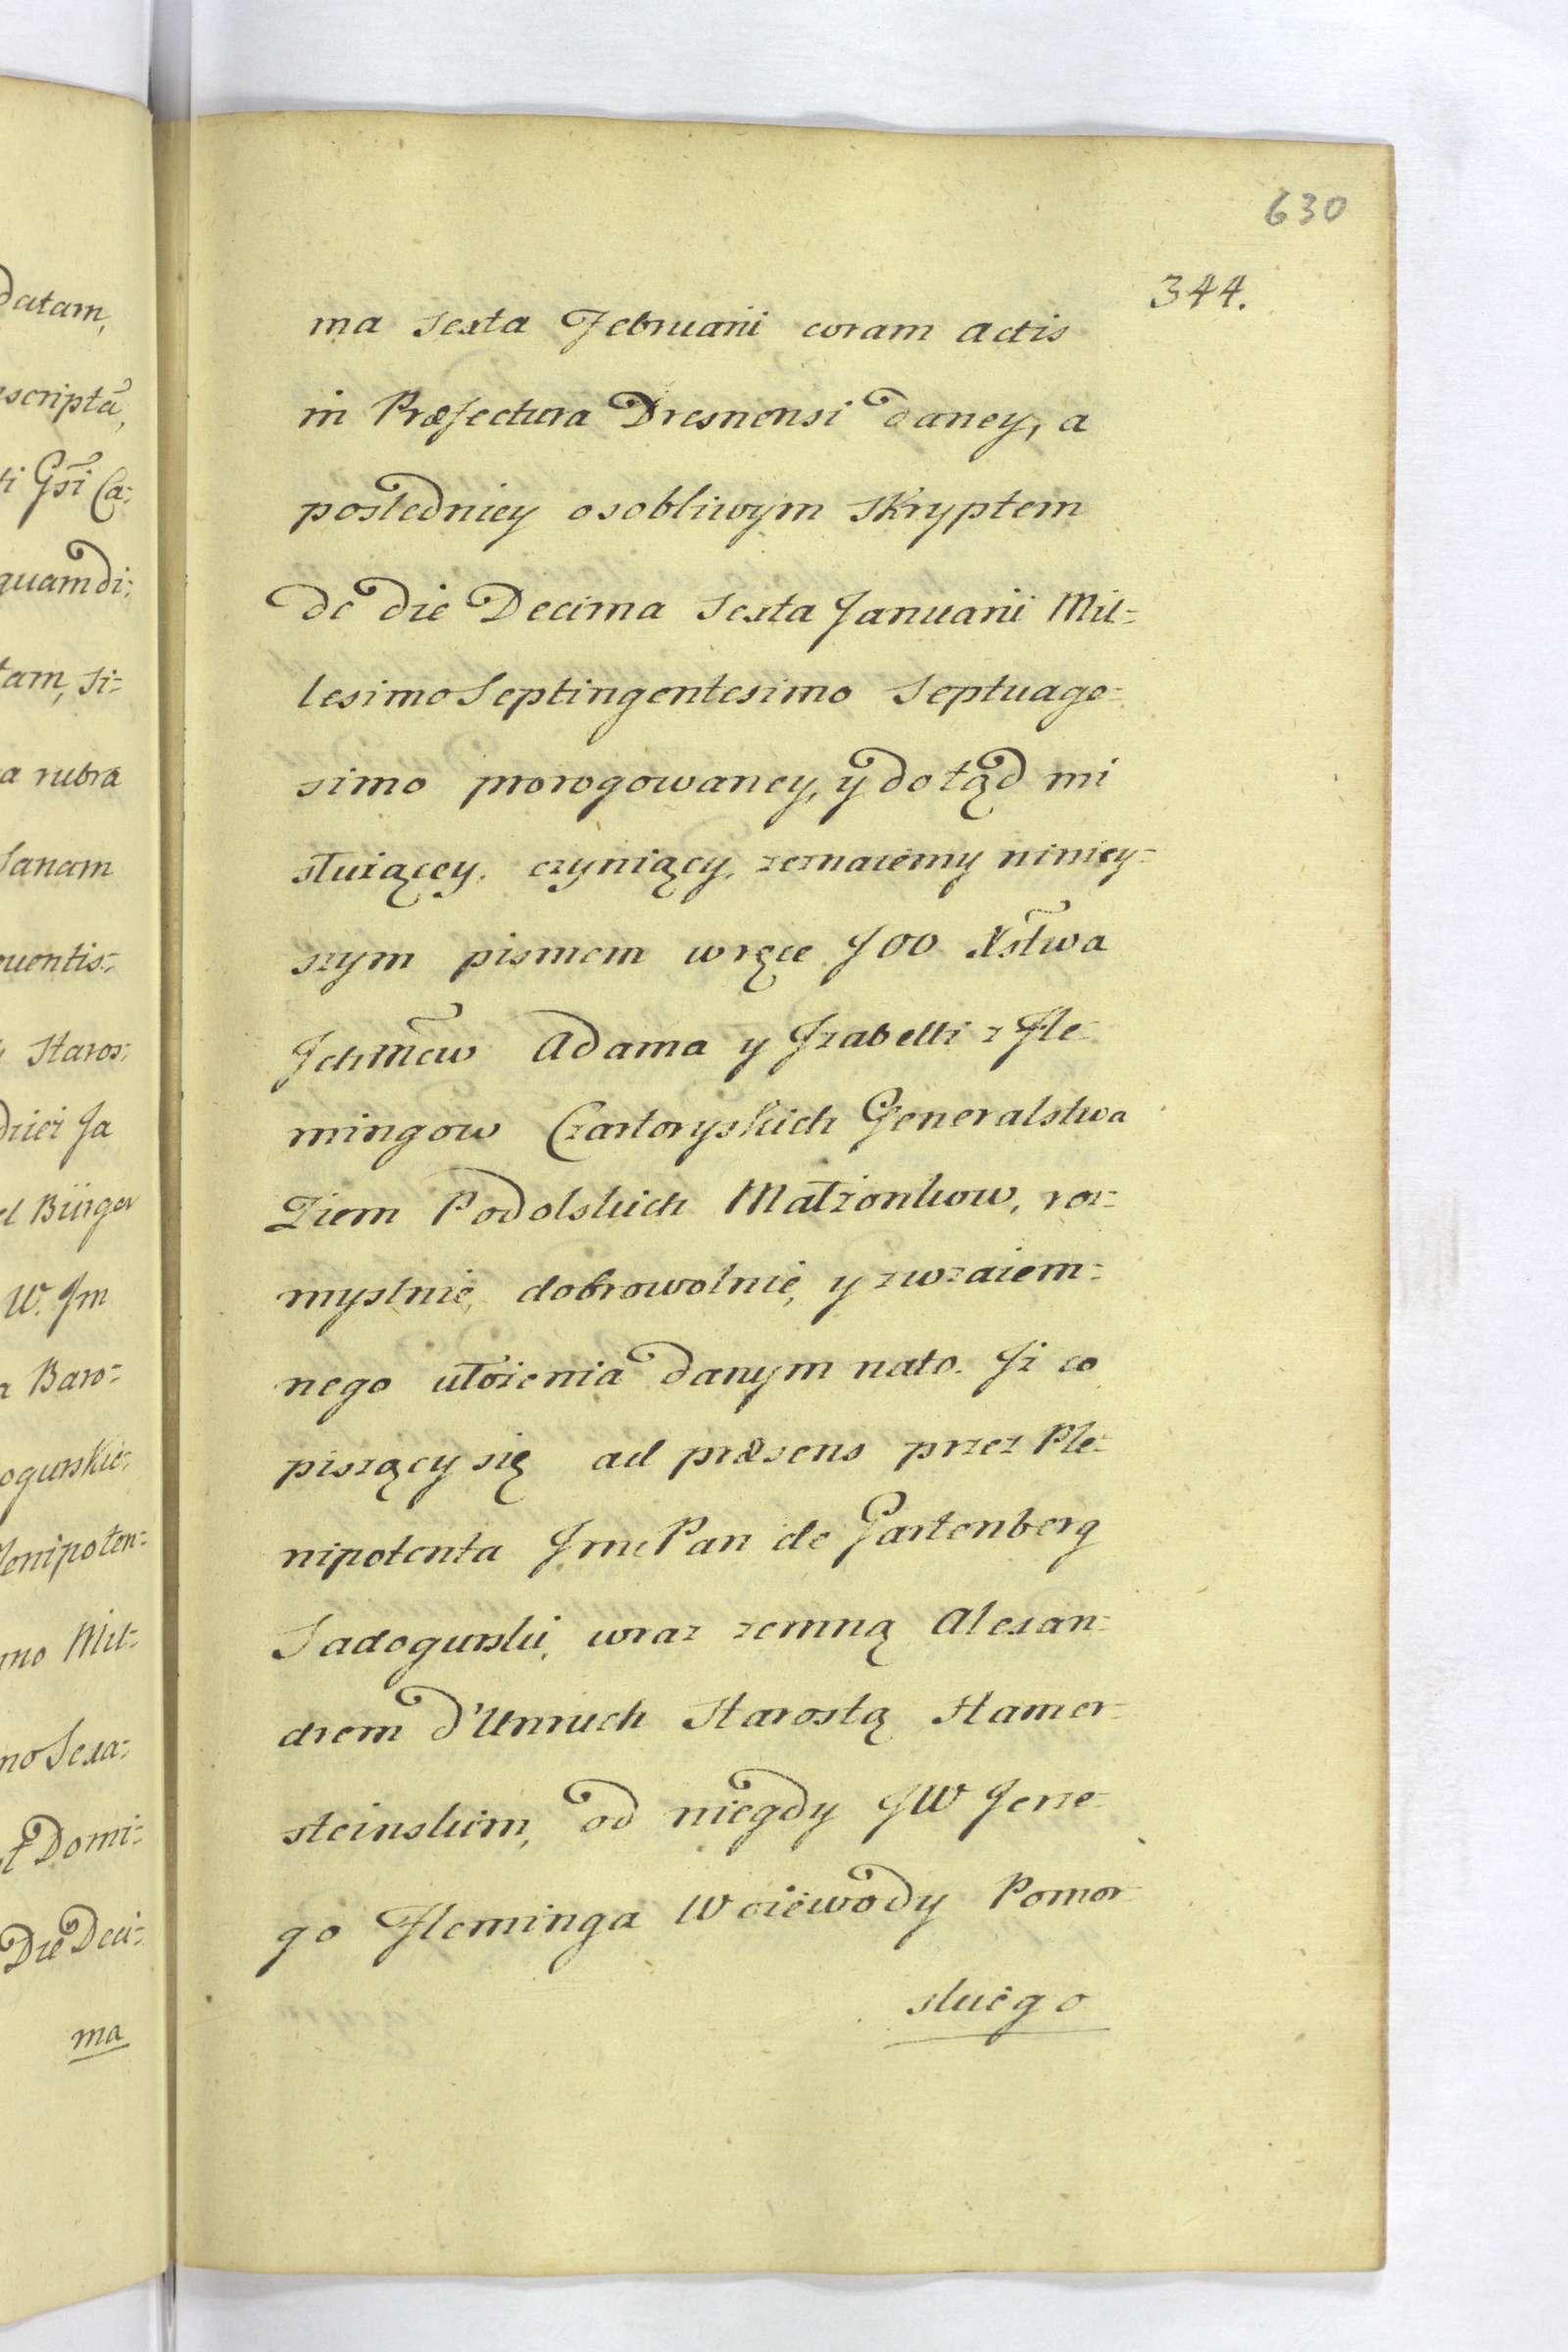 630
344.
ma Sexta Februarii coram Actis
in Præfectura Dresnensi daney, a
posledniey osobliwym Skryptem
de die Decima Sexta Januarii Mil=
lesimo Septingentesimo Septuage=
simo prorogowaney, y dotąd mi
służącey, czyniący, zeznaiemy niniey=
szym pismem wręce JOO Xs̃twa
Jchmc̃ow Adama y Jzabelli z Fle=
mingow Czartoryskich Generalstwa
Ziem Podolskich Małżonkow, roz=
myslnie, dobrowolnie, y zwzaiem=
nego ułożenia danym nato. Jż co
piszący się ad præsens przez Ple=
nipotenta Jmc Pan de Gartenberg
Sadogurski, wraz zemną Alexan=
drem d'Unruch Starostą Hamer=
steinskim, od niegdy JW Jerze=
go Fleminga Woiewody Pomor=
skiego
datam,
scriptã,
ti Gsĩ Ca=
quamdi=
tam, si=
a rubra
Sanam
quentis=
Staros=
drież Ja
el Bürger
W. Jm
a Baro=
ogurskie=
lenipoten=
mo Mil=
mo Sexa=
t Domi=
Die Deci=
ma